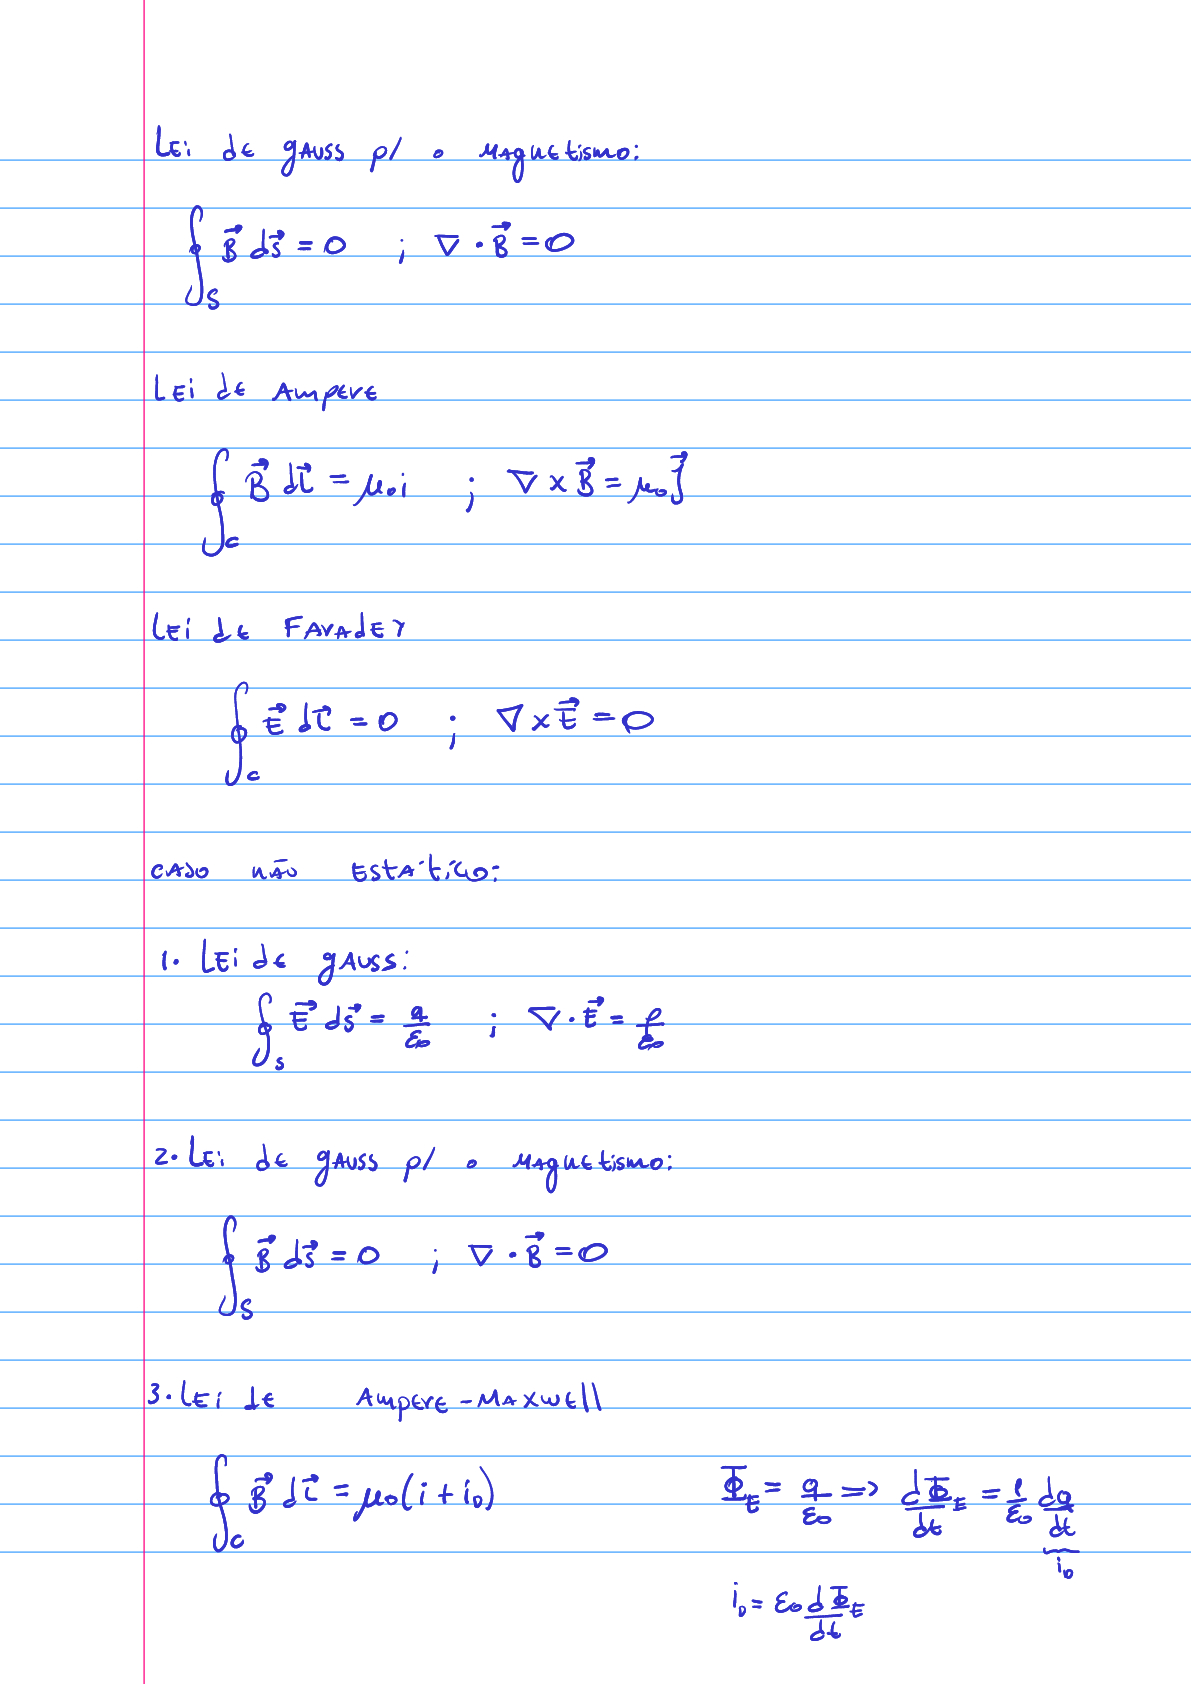 Lei de Gauss p/ o magnetismo:
∮_S B⃗ ds⃗ = 0 ; ∇ · B⃗ = 0
Lei de Ampere
∮_C B⃗ dl⃗ = μ₀i ; ∇ × B⃗ = μ₀J⃗
Lei de Faradey
∮_C E⃗ dl⃗ = 0 ; ∇ × E⃗ = 0
caso não estático:
1. Lei de Gauss:
∮_S E⃗ ds⃗ = q/ε₀ ; ∇ · E⃗ = ρ/ε₀
2. Lei de Gauss p/ o magnetismo:
∮_S B⃗ ds⃗ = 0 ; ∇ · B⃗ = 0
3. Lei de Ampere-Maxwell
∮_C B⃗ dl⃗ = μ₀(i + i_D) Φ_E = q/ε₀ => dΦ_E/dt = 1/ε₀ dq/dt
i_D
i_D = ε₀ dΦ_E/dt